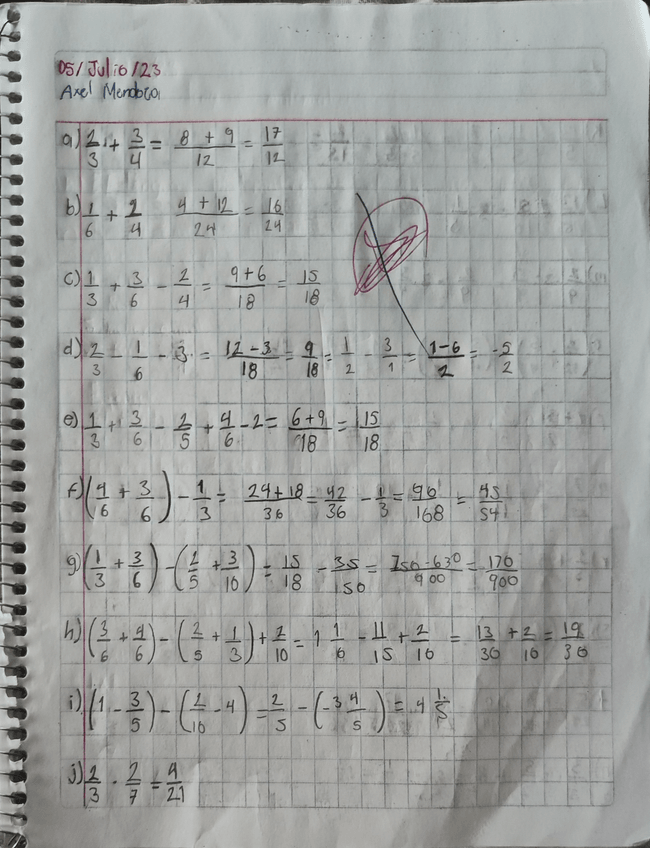 05/Julio/23
Axel Mendoza
a) 2/3 + 3/4 = 8 + 9/12 = 17/12
b) 1/6 + 2/4 4 + 12/24 = 16/24
c) 1/3 + 3/6 - 2/4 = 9+6/18 = 15/18
d) 2/3 - 1/6 - 3 = 12-3/18 = 9/18 = 1/2 - 3/1 = 1-6/2 = -5/2
e) 1/3 + 3/6 - 2/5 + 4/6 - 2 = 6+9/18 = 15/18
f) (4/6 + 3/6) - 1/3 = 24+18/36 = 42/36 - 1/3 = 90/168 = 45/54
g) (1/3 + 3/6) - (2/5 + 3/10) = 15/18 - 35/150 = 750-630/900 = 170/900
h) (3/6 + 4/6) - (2/5 + 1/3) + 2/10 = 1 1/6 - 11/15 + 2/10 = 13/30 + 2/10 = 19/30
i) (1 - 3/5) - (2/10 - 4) = 2/5 - (-3 4/5) = 4 1/5
j) 2/3 · 2/7 = 4/21